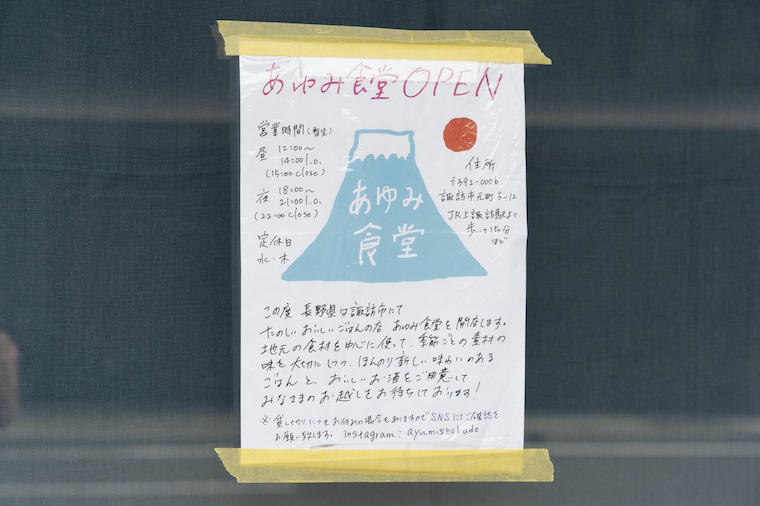 あゆみ食堂 OPEN
営業時間(暫定)
昼 12:00〜
14:00 l.o.
(15:00 close)
夜 18:00〜
21:00 l.o.
(22:00 close)
定休日
水・木
あゆみ
食堂
住所
〒392-0006
諏訪市元町5-12
JR上諏訪駅より
歩いて15分
ほど
この度 長野県は諏訪市にて
たのしいおいしいごはんの店 あゆみ食堂を開店します。
地元の食材を中心に使って、季節ごとの素材の
味を大切にしつつ、ほんのり新しい味わいのある
ごはんと、おいしいお酒をご用意して
みなさまのお越しをお待ちしております!
※貸し切りにつきお休みの場合もありますのでSNSにてご確認を
お願い致します。 instagram: ayumishokudo